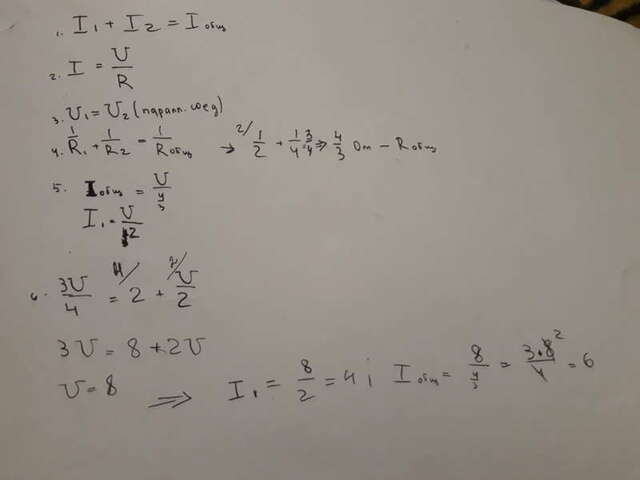 1. I₁ + I₂ = Iобщ
2. I = U/R
3. U₁ = U₂ (паралл. соед)
4. 1/R₁ + 1/R₂ = 1/Rобщ → ²⁄ 1/2 + 1/4 = 3/4 ⇒ 4/3 Ом - Rобщ
5. Iобщ = U/(4/3)
I₁ = U/2
6. 3U/4 = 2 + U/2
3U = 8 + 2U
U = 8 ⇒ I₁ = 8/2 = 4; Iобщ = 8/(4/3) = 3·8²/4 = 6